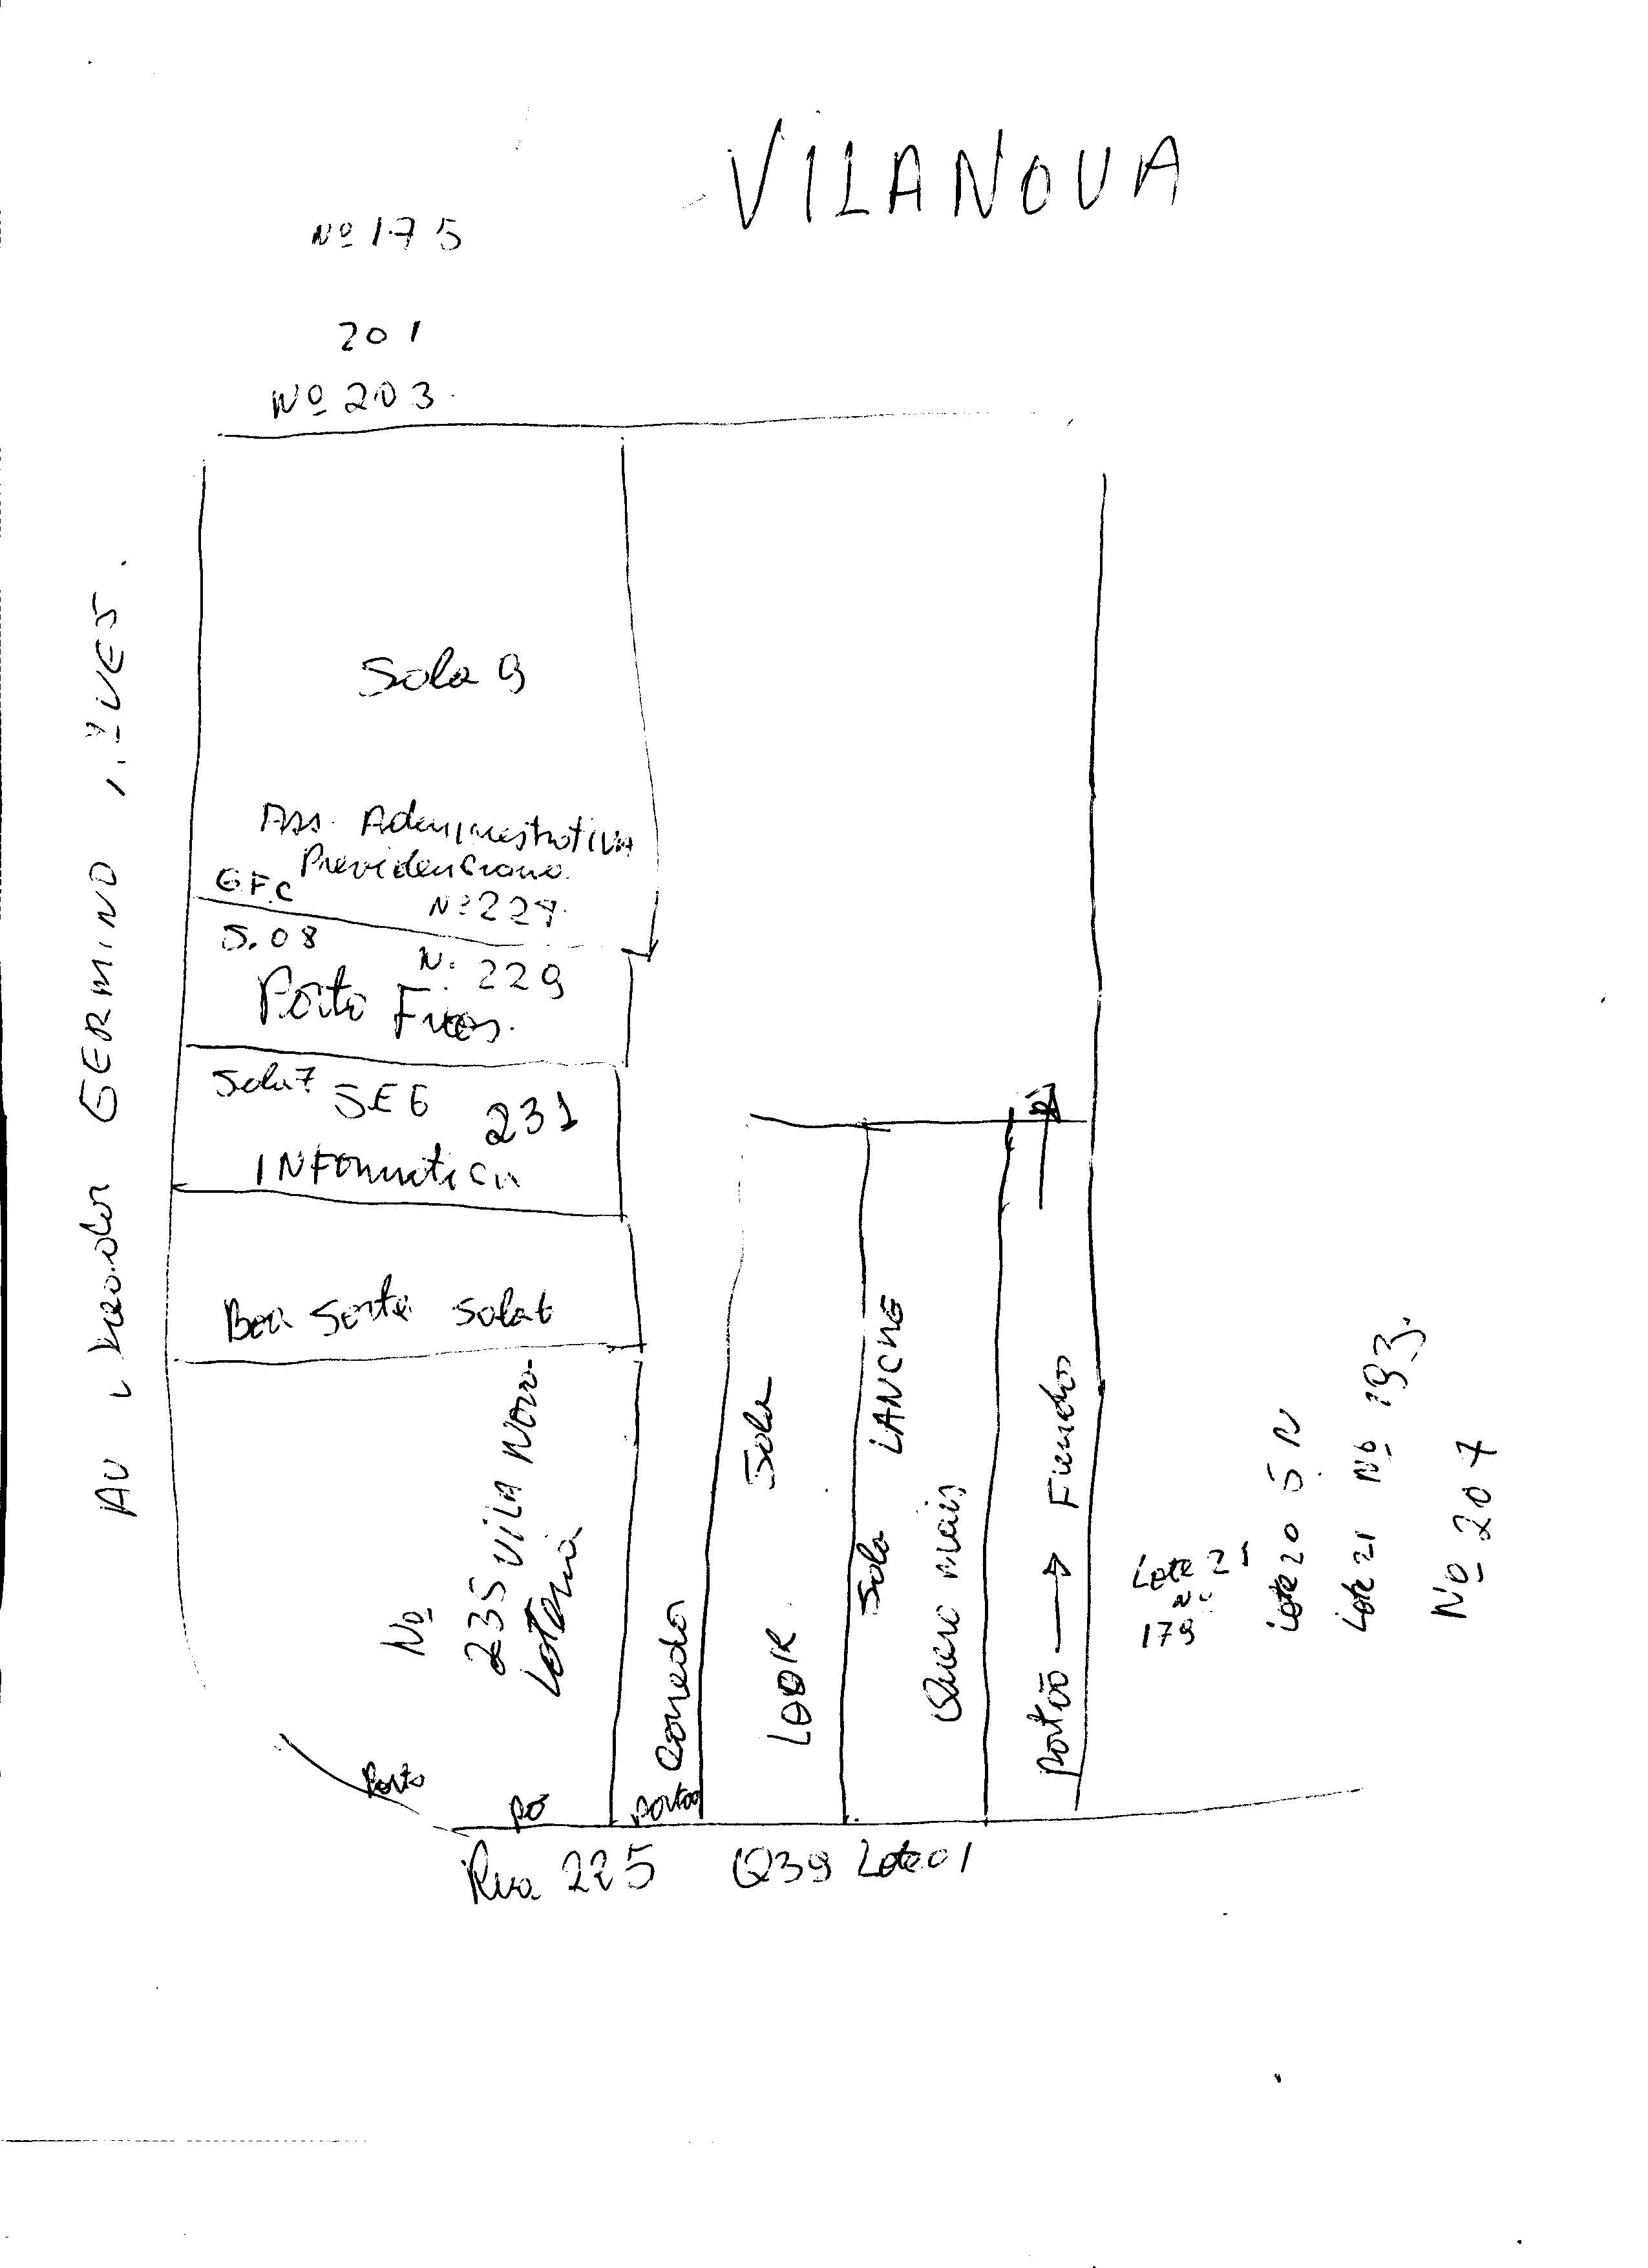 VILANOVA
Nº 175
201
Nº 203.
Sala 9
Ass. Administrativa
Previdenciaria
G.F.C
Nº 227.
S. 08
N. 229
Porto Frios.
Sala 7
SEG
231
INFormatica
Boa Sorte Sala 6
AV GERMINO
Nº
235 VILA Nova
Loteria
Porto
Po
Portao
Corredor
Sala
LOOR
Sala LANCHE
Quero mais
Portão → Fundos
Lote 21
179
Lote 20 S. N
Lote 21 Nº 193.
Nº 207
Rua 225 Q39 Lote 01